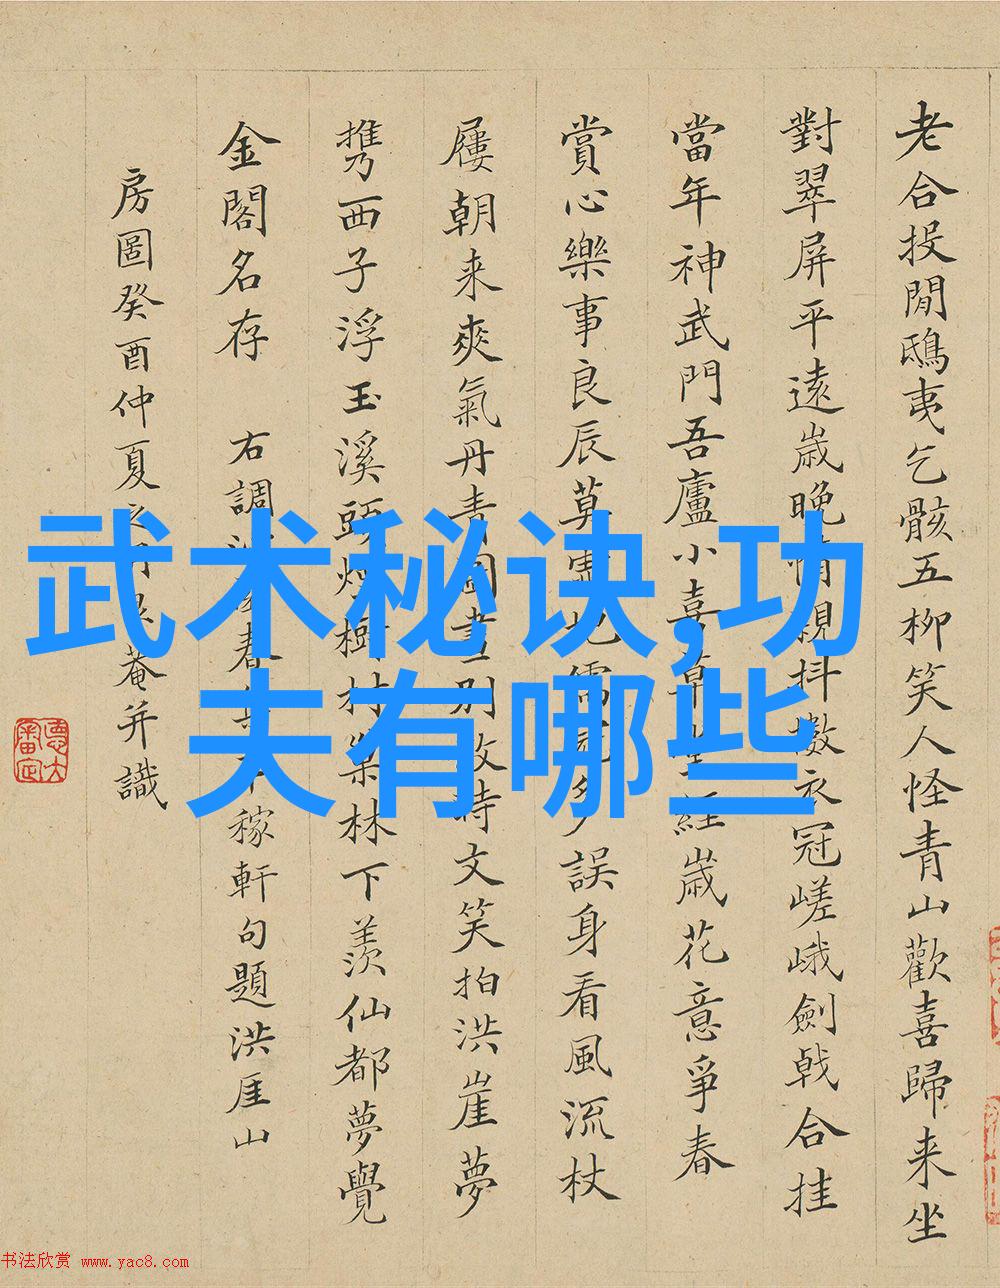 老合投閒鴟夷乞骸五柳笑人怪青山歡喜歸来坐
對翠屏平遠歲晚情親抖擻衣冠嵯峨劍戟合挂
當年神武門吾廬小喜草堂經歲花意爭春
賞心樂事良辰莫虛地儒冠多誤身看風流杖
屨朝来爽氣丹青圖畫別時文笑拍洪崖夢
携西子浮玉溪頭煙樹村林下羨仙都夢覺
金閣名存 右調沁園春集辛稼軒句題洪厓山
房圖癸酉仲夏之菴并識
武术秘诀,功
夫有哪些
书法欣赏 www.yac8.com